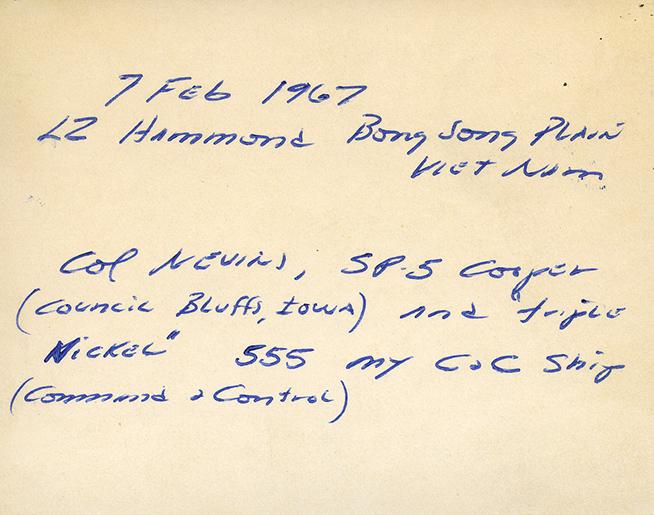 7 Feb 1967
LZ Hammond Bong Song Plain
Viet Nam
Col Nevins, SP-5 Cooper
(Council Bluffs, Iowa) and "triple
Nickel" 555 my C&C Ship
(Command & Control)